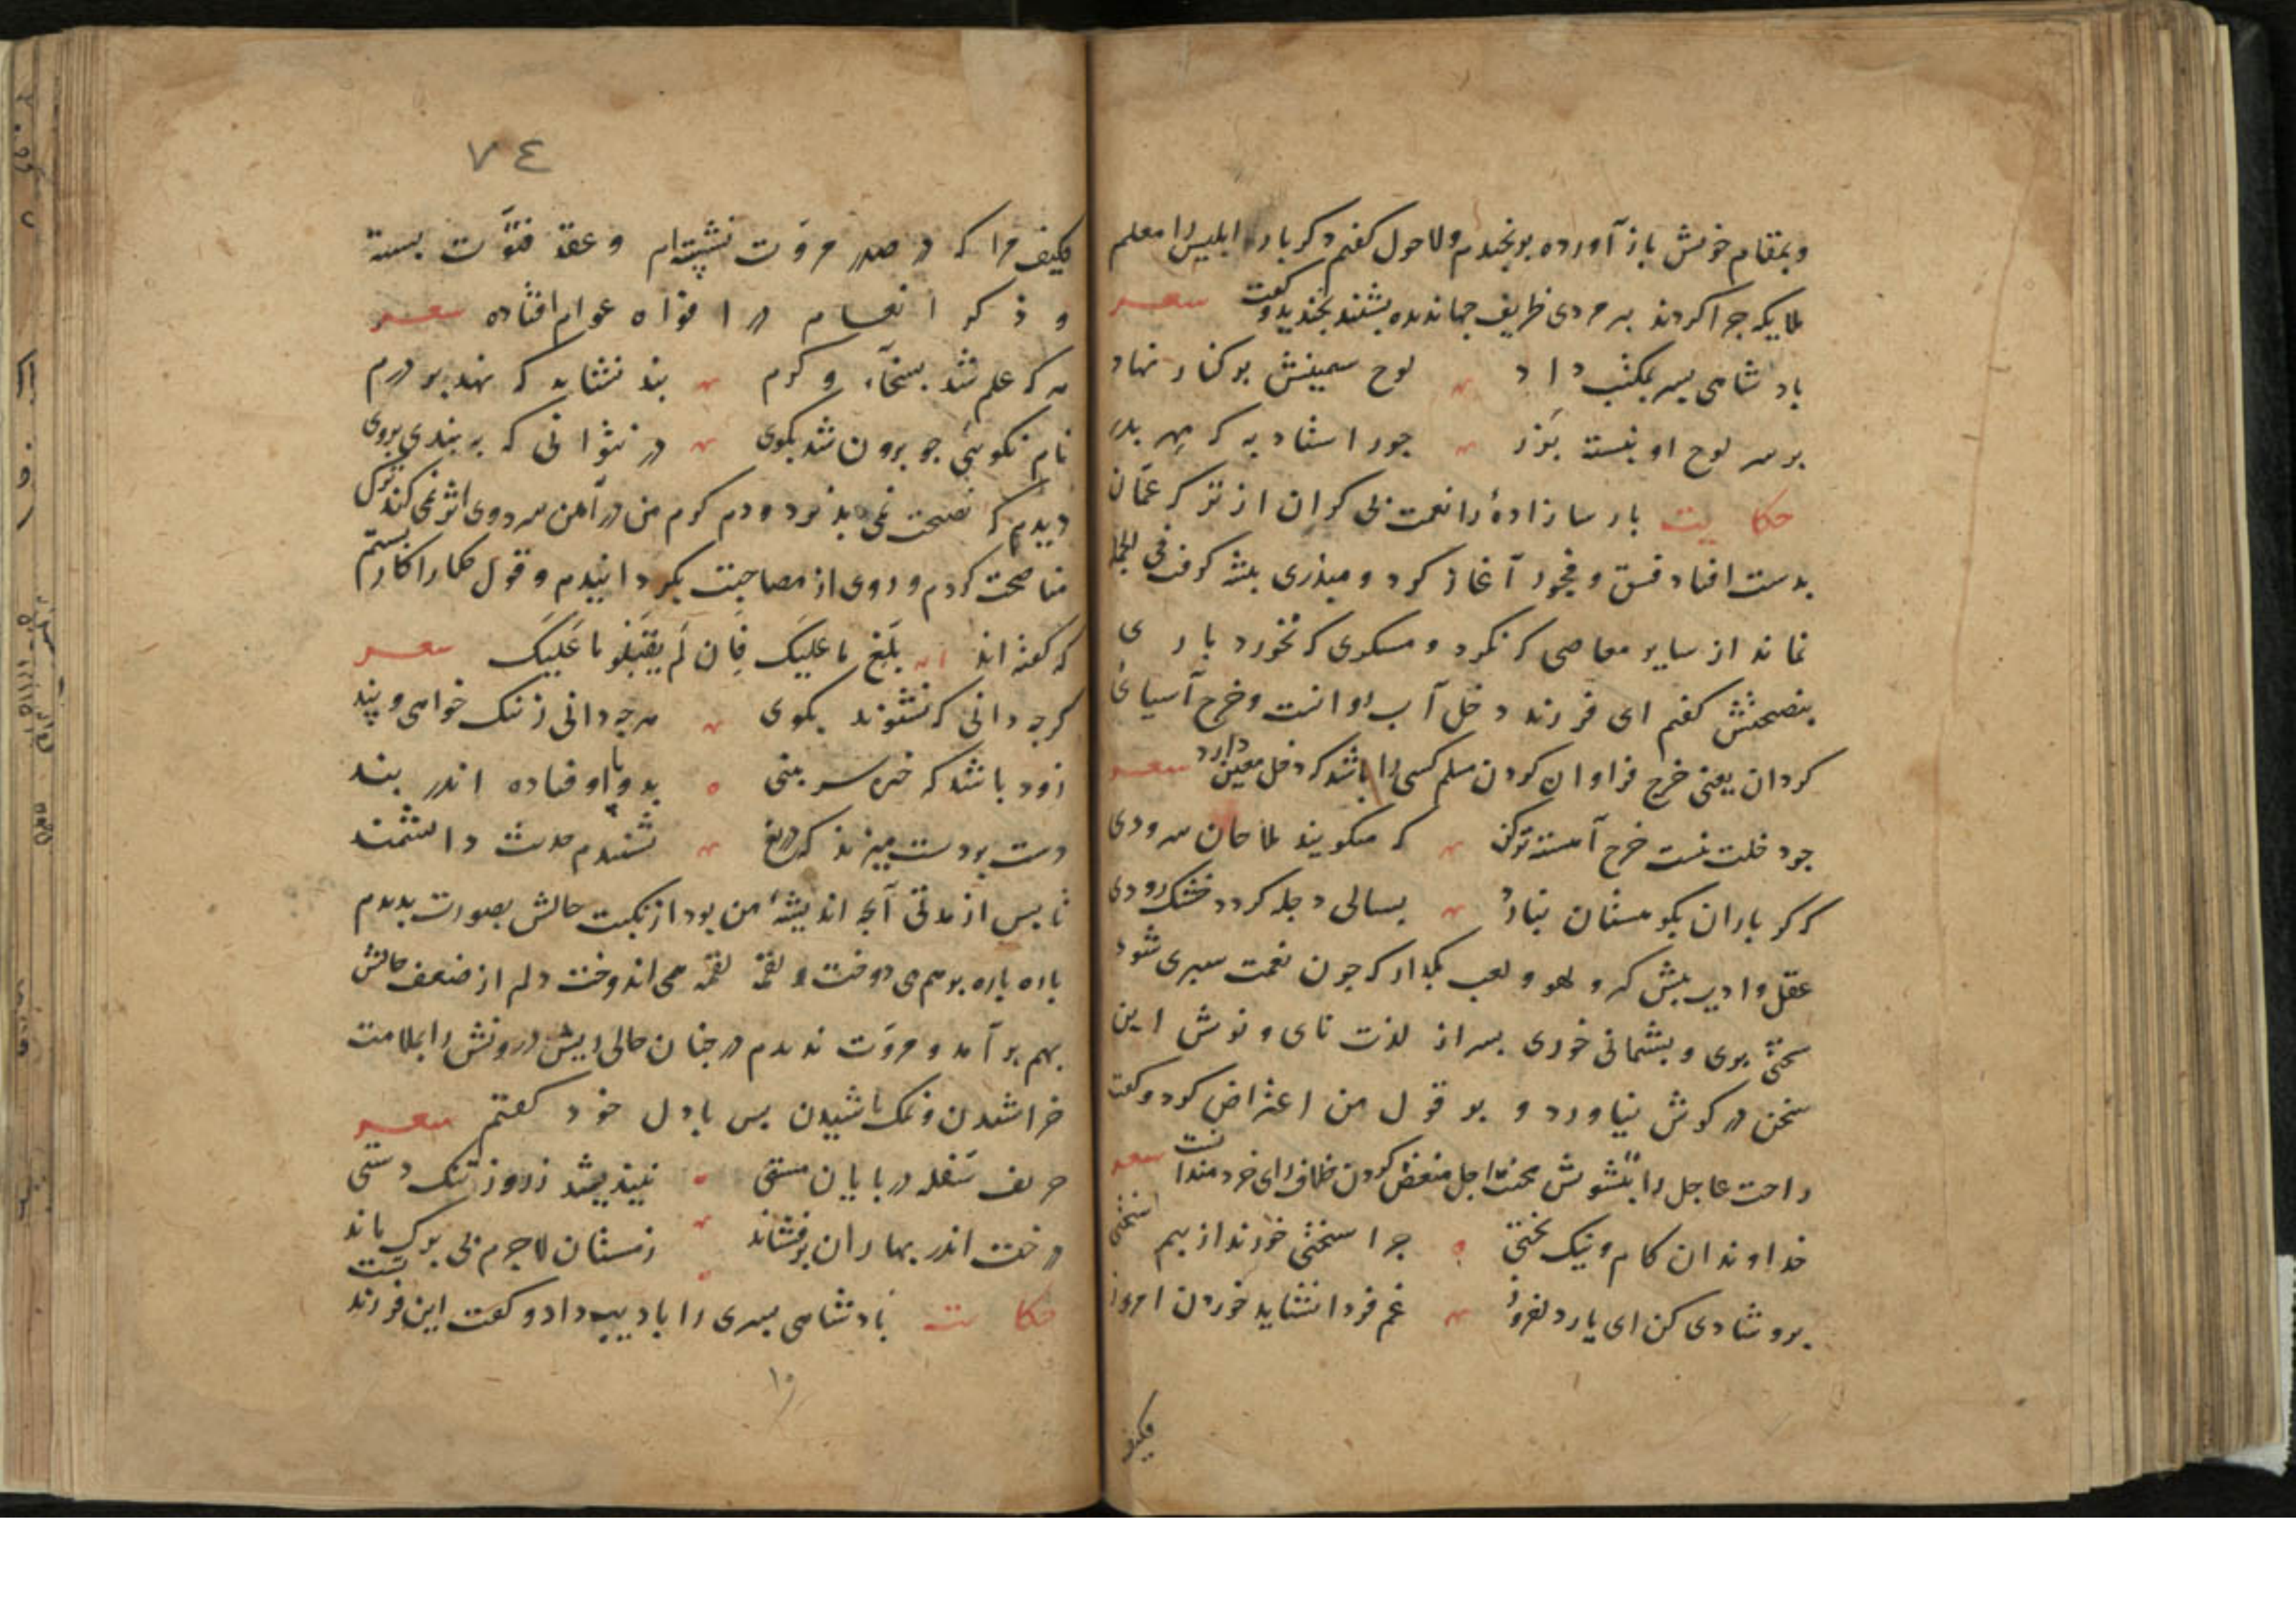 وبمقام خویش باز آورده برنجیدم ولاحول کفتم دکر بار ابلیس را معلم
ملایکه جرا کردند بیر مردی ظریف جهاندیده بشنید بخندید و کفت شعر
بادشاهی بسر بمکتب داد لوح سیمینش بر کنار نهاد
بر سر لوح او نبشته بزر جور استاد به که مهر بدر
حکایت بارسا زادهٔ را نعمت بی کران از ترکه عمان
بدست افتاد فسق و فجور آغاز کرد و مبذری بیشه کرفت فی الجمله
نماند از سایر معاصی که نکرد و مسکری که نخورد باری
بنصیحتش کفتم ای فرزند دخل آب روانست وخرج آسیائی
کردان یعنی خرج فراوان کردن مسلم کسی را باشد که دخل معین دارد شعر
جو دخلت نیست خرج آهسته تر کن که میکویند ملاحان سرودی
که کر باران بکوهستان نبارد بسالی دجله کردد خشک رودی
عقل و ادب بیش کیر و لهو و لعب بکذار که جون نعمت سبری شود
سختی بری و بشیمانی خوری بسر از لذت نای و نوش این
سخن در کوش نیاورد و بر قول من اعتراض کرد و کفت
راحت عاجل را بتشویش محنت اجل منغض کردن خلاف رای خردمندانست شعر
خداوندان کام و نیک بختی جرا سختی خورند از بیم سختی
برو شادی کن ای یار دلفروز غم فردا نشاید خوردن امروز
فکیف
٧٤
فکیف مرا که در صدر مروّت نشسته‌ام و عقد فتوّت بسته
و ذکر انعام در افواه عوام افتاده شعر
هر که علم شد بسخآء و کرم بند نشاید که نهد بر درم
نام نکوئی جو برون شد بکوی در نتوانی که به بندی بروی
دیدم که نصیحت نمی بذیرد و دم کرم من در آهن سرد وی اثر نمی کند ترک
مناصحت کردم و روی از مصاحبت بکردانیدم و قول حکما را کار بستم
که کفته اند بَلِّغ ما علیکَ فَاِن لَم یَقبَلُو ما عَلیکَ شعر
کرجه دانی که نشنوند بکوی هر جه دانی ز نیک خواهی و پند
زود باشد که خیره سر بینی بدو پا اوفتاده اندر بند
دست بر دست میزند که دریغ نشنیدم حدیث دانشمند
تا بس از مدتی آنجه اندیشهٔ من بود از نکبت حالش بصورت بدیدم
باره باره بر هم می دوخت و لقمه لقمه می اندوخت دلم از ضعف حالش
بهم بر آمد و مروّت ندیدم در جنان حالی ریش درونش را بملامت
خراشیدن و نمک باشیدن بس با دل خود کفتم شعر
حریف سفله در بایان مستی نیندیشد ز روز تنک دستی
درخت اندر بهاران بر فشاند زمستان لاجرم بی برک ماند
حکایت بادشاهی بسری را بادیب داد و کفت این فرزند تست